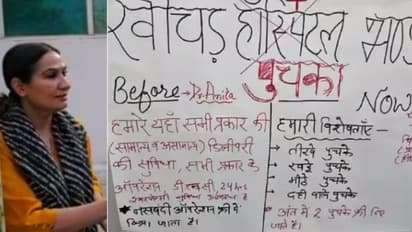 खीचड़ हॉस्पिटल
पुचका
Before → Dr. Anita
हमारे यहाँ सभी प्रकार की
(सामान्य व असामान्य) डिलीवरी
की सुविधा, सभी प्रकार के
ऑपरेशन, डी एन सी, 24 hrs
नसबंदी ऑपरेशन फ्री में
किया जाता है।
Now
हमारी विशेषताएँ -
तीखे पुचके
खट्टे पुचके
मीठे पुचके
दही वाले पुचके
अंत में 2 पुचके फ्री दिए
जाते हैं।